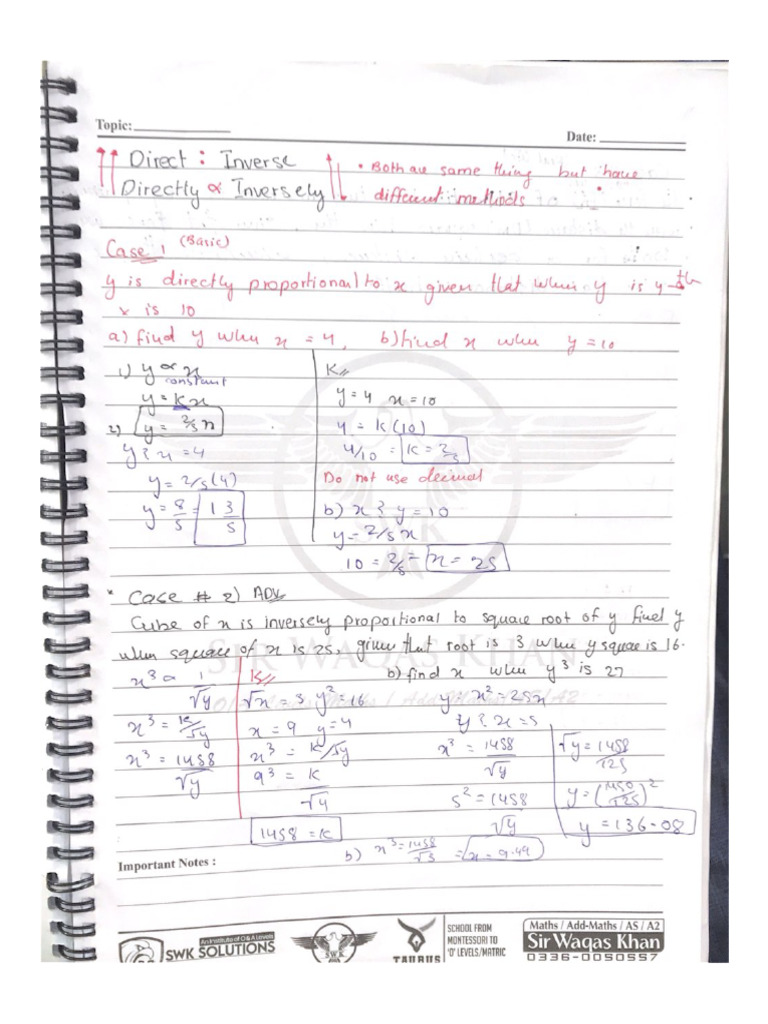 Topic:
Date:
Direct : Inverse
Directly ∝ Inversely
• Both are same thing but have
different methods
Case 1 (Basic)
y is directly proportional to x given that when y is 4
x is 10
a) find y when x = 4, b) find x when y = 10
1) y ∝ x
constant
y = kx
2) y = 2/5 x
y ? x = 4
y = 2/5(4)
y = 8/5 = 1 3/5
K//
y = 4 x = 10
4 = k(10)
4/10 = k = 2/5
Do not use decimal
b) x ? y = 10
y = 2/5 x
10 = 2/5 = x = 25
* Case # 2) Adv
Cube of x is inversely proportional to square root of y find y
when square of x is 25, given that root is 3 when y square is 16.
b) find x when y³ is 27
x³ ∝ 1/√y
x³ = k/√y
x³ = 1458/√y
K//
√x = 3 y² = 16
x = 9 y = 4
x³ = k/√y
9³ = k/√4
1458 = k
y x² = 25x
y ? x = 5
x³ = 1458/√y
5² = 1458/√y
√y = 1458/125
y = (1458/125)²
y = 136.08
b) x³ = 1458/√3 = x = 9.49
Important Notes :
SIR WAQAS KHAN
O Levels / Maths / Add-Maths / AS / A2
An Institute of O & A Levels
SWK SOLUTIONS
SWK
TAURUS
SCHOOL FROM
MONTESSORI TO
'O' LEVELS/MATRIC
Maths / Add-Maths / AS / A2
Sir Waqas Khan
0336-0050557